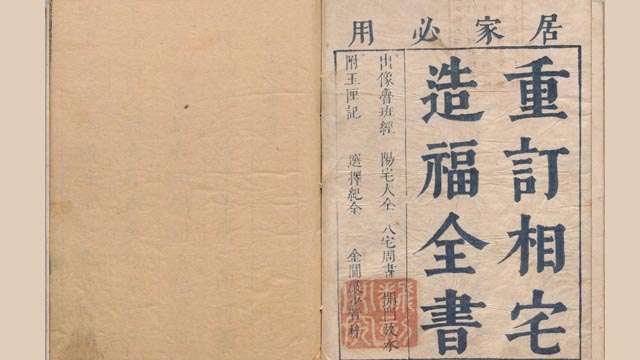 居家必用
重訂相宅
造福全書
出像魯班經 陽宅大全 八宅周書 門放水
附玉匣記 選擇紀全 金